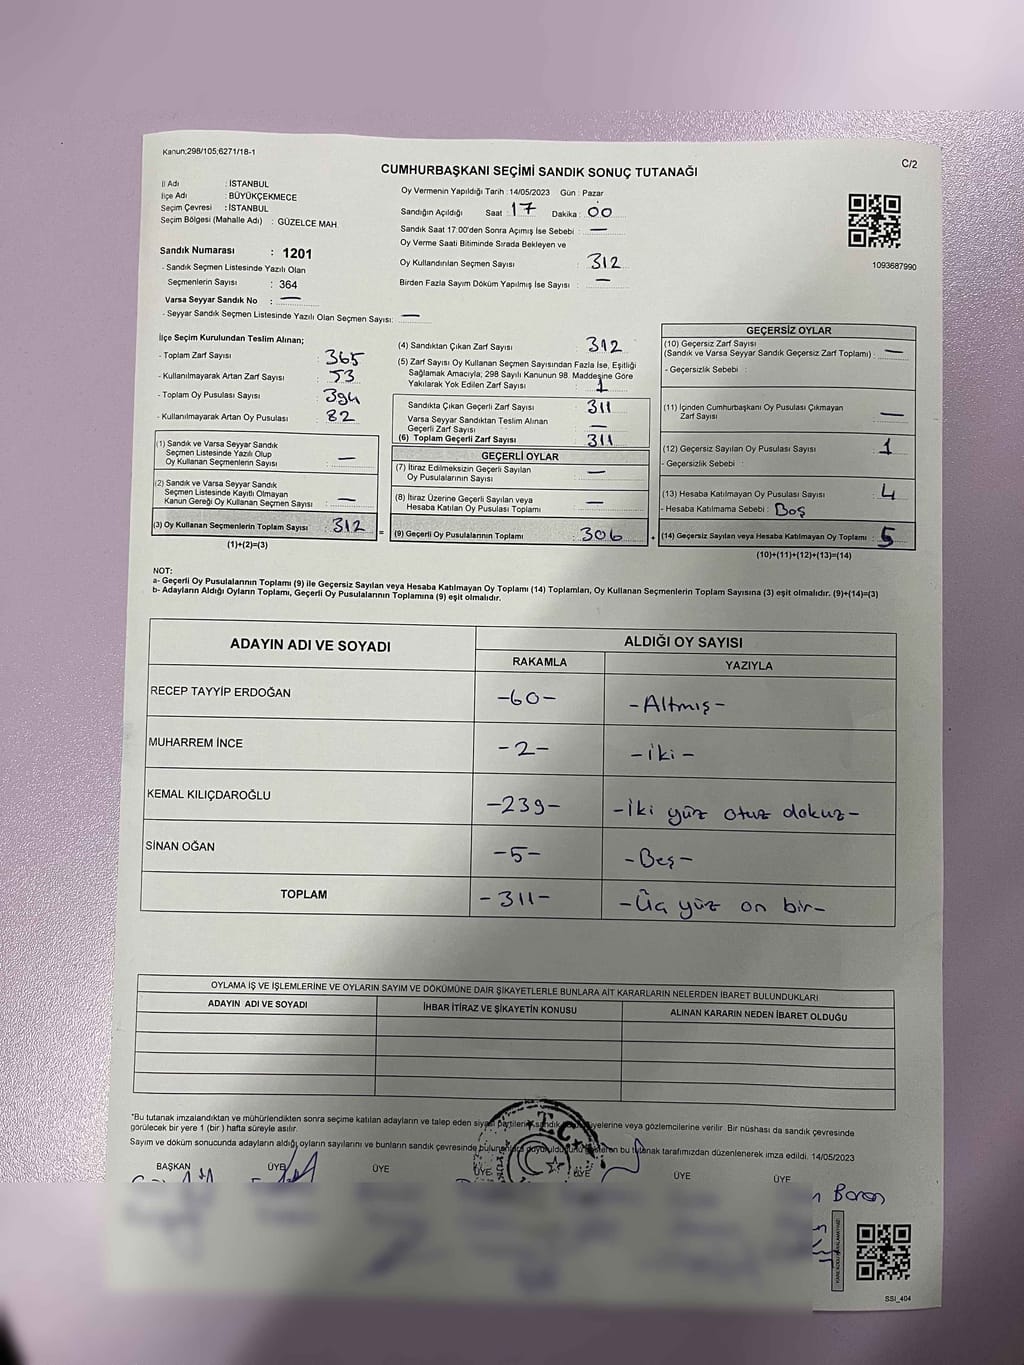 Kanun;298/105,6271/18-1
C/2
CUMHURBAŞKANI SEÇİMİ SANDIK SONUÇ TUTANAĞI
İl Adı : İSTANBUL
İlçe Adı : BÜYÜKÇEKMECE
Seçim Çevresi : İSTANBUL
Seçim Bölgesi (Mahalle Adı) : GÜZELCE MAH.
Sandık Numarası : 1201
- Sandık Seçmen Listesinde Yazılı Olan
Seçmenlerin Sayısı : 364
Varsa Seyyar Sandık No : —
- Seyyar Sandık Seçmen Listesinde Yazılı Olan Seçmen Sayısı: —
Oy Vermenin Yapıldığı Tarih : 14/05/2023 Gün : Pazar
Sandığın Açıldığı Saat : 17 Dakika : 00
Sandık Saat 17:00'den Sonra Açımış İse Sebebi : —
Oy Verme Saati Bitiminde Sırada Bekleyen ve
Oy Kullandırılan Seçmen Sayısı : 312
Birden Fazla Sayım Döküm Yapılmış İse Sayısı : —
1093687990
İlçe Seçim Kurulundan Teslim Alınan;
- Toplam Zarf Sayısı : 365
- Kullanılmayarak Artan Zarf Sayısı : 53
- Toplam Oy Pusulası Sayısı : 394
- Kullanılmayarak Artan Oy Pusulası : 82
(1) Sandık ve Varsa Seyyar Sandık
Seçmen Listesinde Yazılı Olup
Oy Kullanan Seçmenlerin Sayısı : —
(2) Sandık ve Varsa Seyyar Sandık
Seçmen Listesinde Kayıtlı Olmayan
Kanun Gereği Oy Kullanan Seçmen Sayısı : —
(3) Oy Kullanan Seçmenlerin Toplam Sayısı : 312 =
(1)+(2)=(3)
(4) Sandıktan Çıkan Zarf Sayısı : 312
(5) Zarf Sayısı Oy Kullanan Seçmen Sayısından Fazla İse, Eşitliği
Sağlamak Amacıyla; 298 Sayılı Kanunun 98. Maddesine Göre
Yakılarak Yok Edilen Zarf Sayısı : 1
Sandıkta Çıkan Geçerli Zarf Sayısı : 311
Varsa Seyyar Sandıktan Teslim Alınan
Geçerli Zarf Sayısı : —
(6) Toplam Geçerli Zarf Sayısı : 311
GEÇERLİ OYLAR
(7) İtiraz Edilmeksizin Geçerli Sayılan
Oy Pusulalarının Sayısı : —
(8) İtiraz Üzerine Geçerli Sayılan veya
Hesaba Katılan Oy Pusulası Toplamı : —
(9) Geçerli Oy Pusulalarının Toplamı : 306 +
GEÇERSİZ OYLAR
(10) Geçersiz Zarf Sayısı
(Sandık ve Varsa Seyyar Sandık Geçersiz Zarf Toplamı) : —
- Geçersizlik Sebebi :
(11) İçinden Cumhurbaşkanı Oy Pusulası Çıkmayan
Zarf Sayısı : —
(12) Geçersiz Sayılan Oy Pusulası Sayısı : 1
- Geçersizlik Sebebi :
(13) Hesaba Katılmayan Oy Pusulası Sayısı : 4
- Hesaba Katılmama Sebebi : Boş
(14) Geçersiz Sayılan veya Hesaba Katılmayan Oy Toplamı : 5
(10)+(11)+(12)+(13)=(14)
NOT:
a- Geçerli Oy Pusulalarının Toplamı (9) ile Geçersiz Sayılan veya Hesaba Katılmayan Oy Toplamı (14) Toplamları, Oy Kullanan Seçmenlerin Toplam Sayısına (3) eşit olmalıdır. (9)+(14)=(3)
b- Adayların Aldığı Oyların Toplamı, Geçerli Oy Pusulalarının Toplamına (9) eşit olmalıdır.
ADAYIN ADI VE SOYADI ALDIĞI OY SAYISI
RAKAMLA YAZIYLA
RECEP TAYYİP ERDOĞAN -60- -Altmış-
MUHARREM İNCE -2- -iki-
KEMAL KILIÇDAROĞLU -239- -İki yüz otuz dokuz-
SİNAN OĞAN -5- -Beş-
TOPLAM -311- -Üç yüz on bir-
OYLAMA İŞ VE İŞLEMLERİNE VE OYLARIN SAYIM VE DÖKÜMÜNE DAİR ŞİKAYETLERLE BUNLARA AİT KARARLARIN NELERDEN İBARET BULUNDUKLARI
ADAYIN ADI VE SOYADI İHBAR İTİRAZ VE ŞİKAYETİN KONUSU ALINAN KARARIN NEDEN İBARET OLDUĞU
*Bu tutanak imzalandıktan ve mühürlendikten sonra seçime katılan adayların ve talep eden siyasi partilerin sandık üyelerine veya gözlemcilerine verilir. Bir nüshası da sandık çevresinde
görülecek bir yere 1 (bir) hafta süreyle asılır.
Sayım ve döküm sonucunda adayların aldığı oyların sayılarını ve bunların sandık çevresinde bu tutanak tarafımızdan düzenlenerek imza edildi. 14/05/2023
T.C.
BAŞKAN ÜYE ÜYE ÜYE ÜYE ÜYE ÜYE
SSI_404